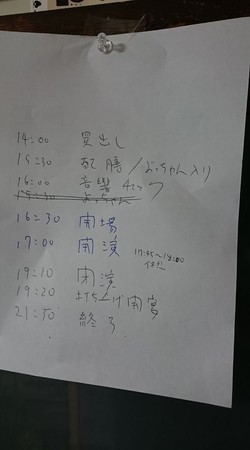 14:00 買出し
15:30 配膳/よっちゃん入り
16:00 音響
16:30 開場
17:00 開演 17:45~18:00
19:10 閉演
19:20 打ち上げ開宴
21:50 終了